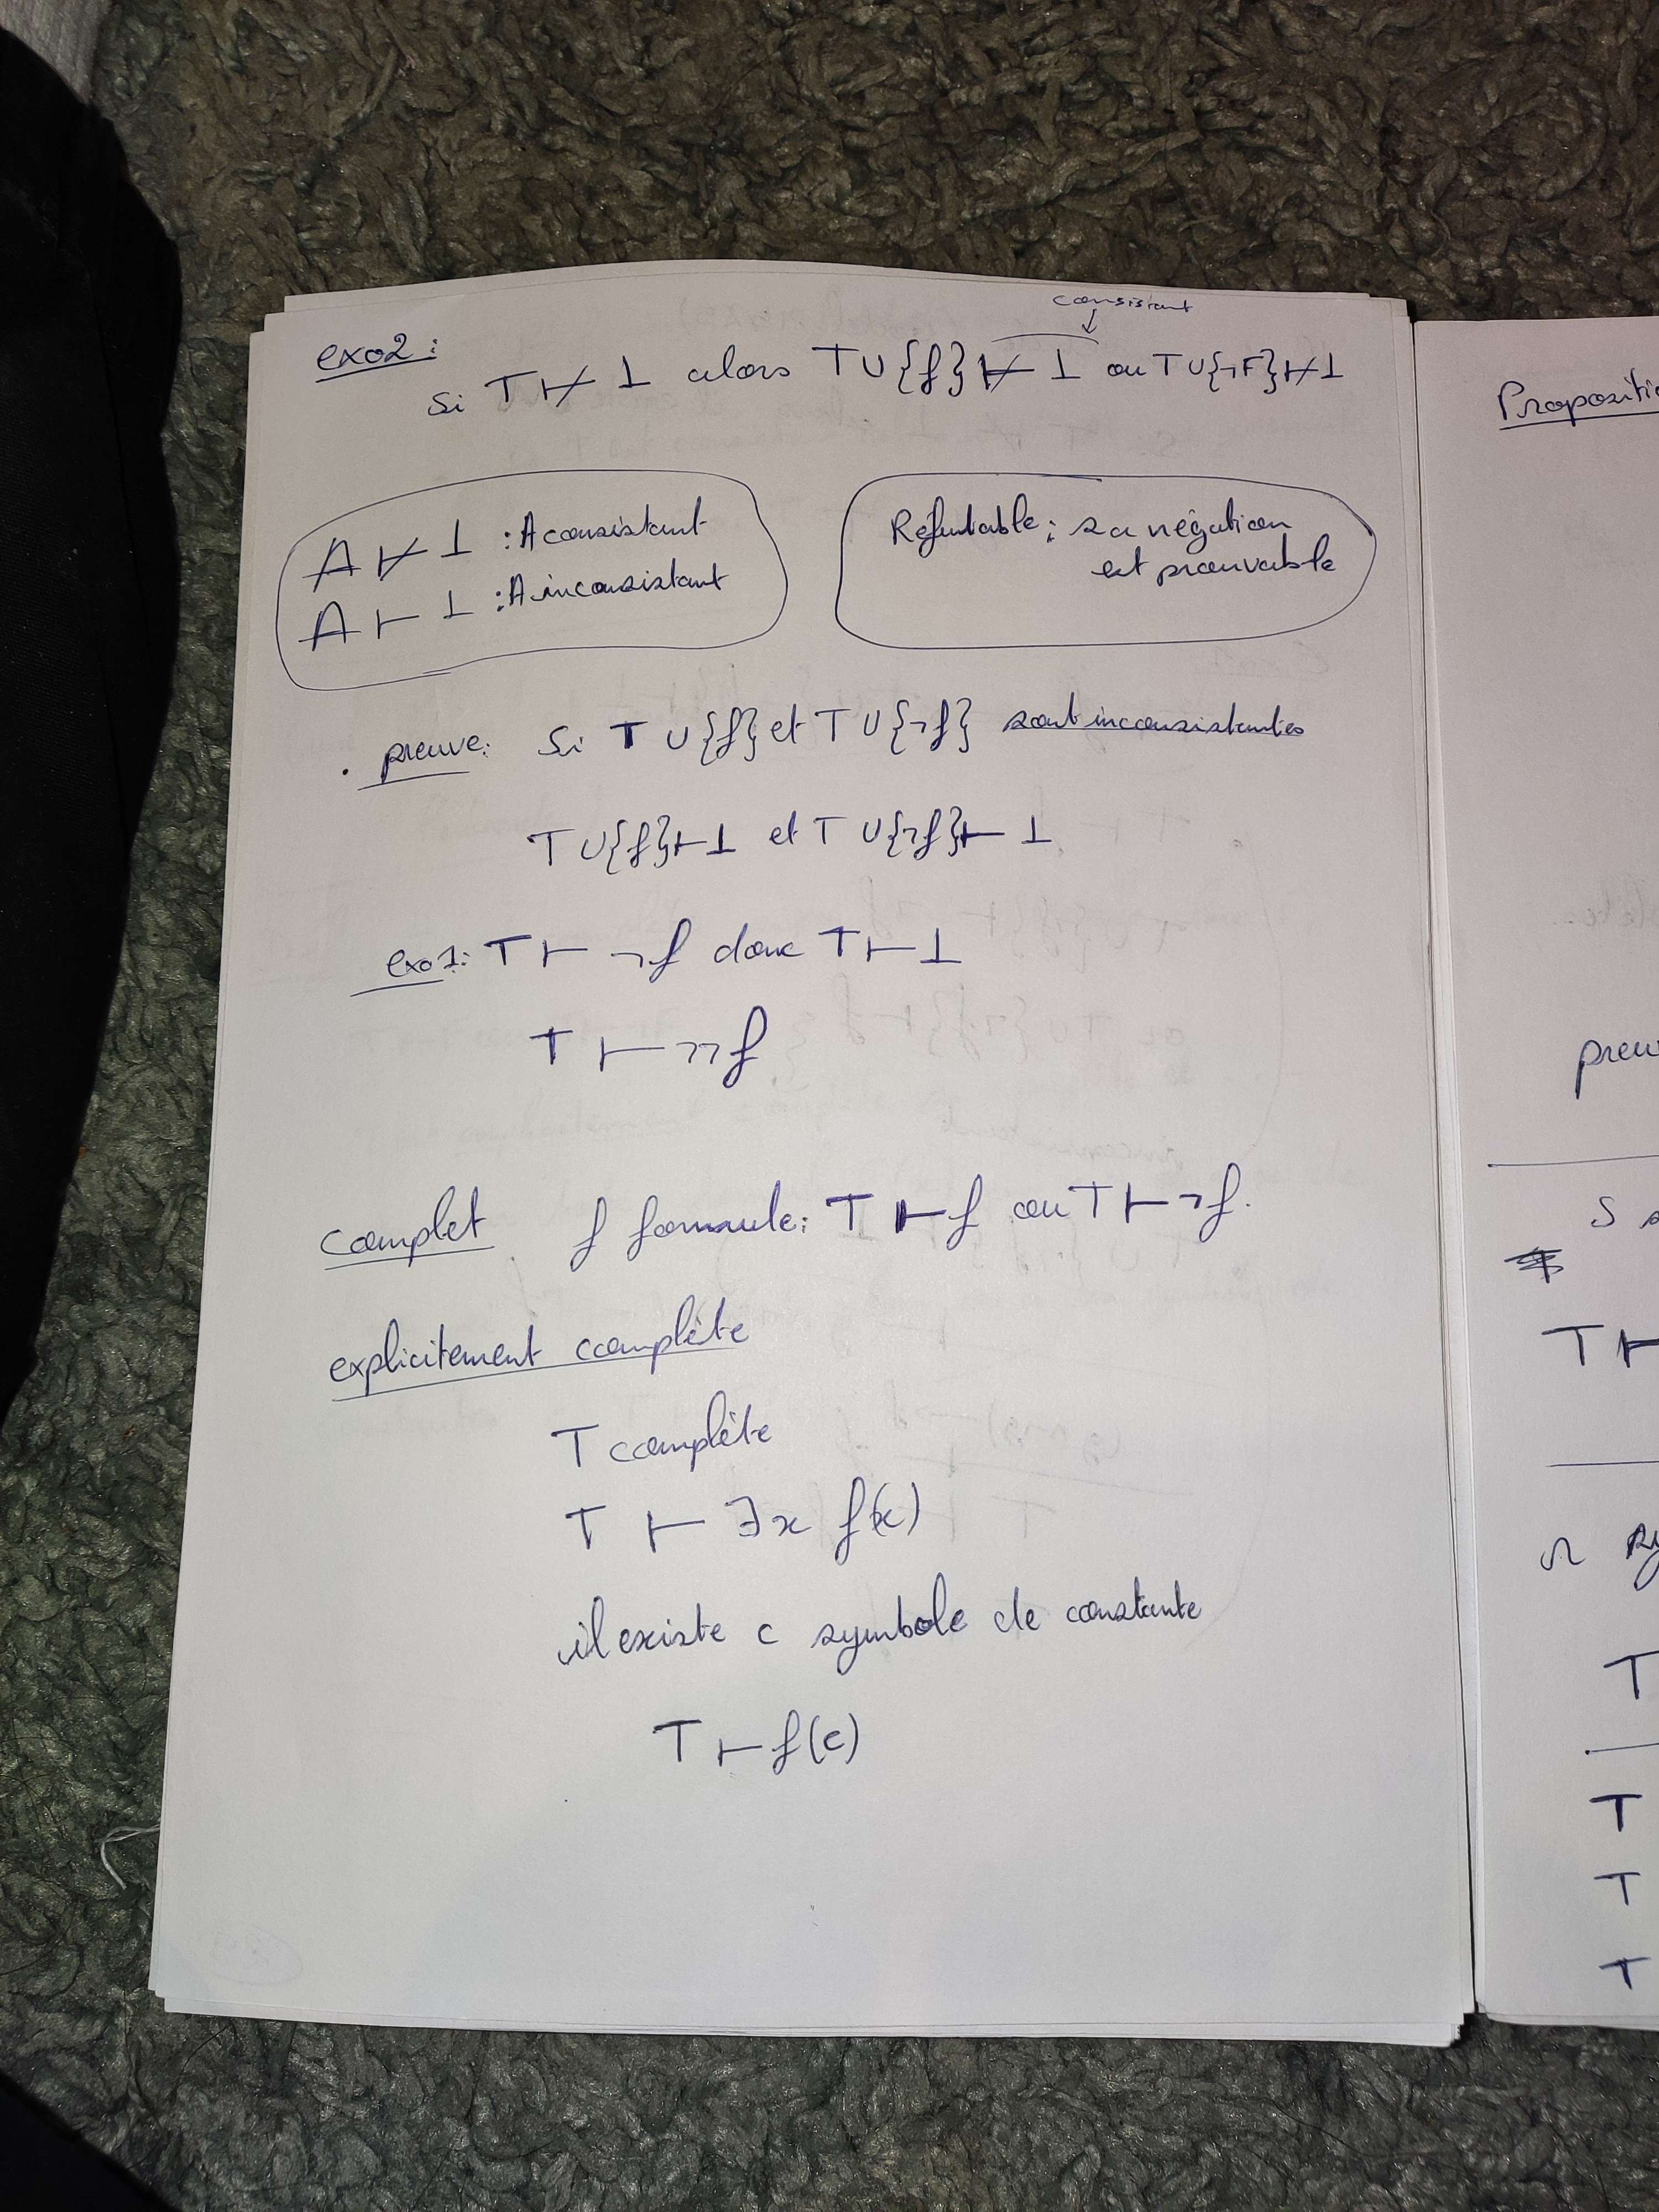 consistant
↓
exo2:
Si T ⊬ ⊥ alors T ∪ {f} ⊬ ⊥ ou T ∪ {¬F} ⊬ ⊥
A ⊬ ⊥ : A consistant
A ⊢ ⊥ : A inconsistant
Réfutable : sa négation
est prouvable
. preuve: Si T ∪ {f} et T ∪ {¬f} sont inconsistantes
T ∪ {f} ⊢ ⊥ et T ∪ {¬f} ⊢ ⊥
exo1: T ⊢ ¬f donc T ⊢ ⊥
T ⊢ ¬¬f
Complet f formule: T ⊢ f ou T ⊢ ¬f.
explicitement complète
T complète
T ⊢ ∃x f(x)
il existe c symbole de constante
T ⊢ f(c)
preu
S
T ⊢
T
T
T
T